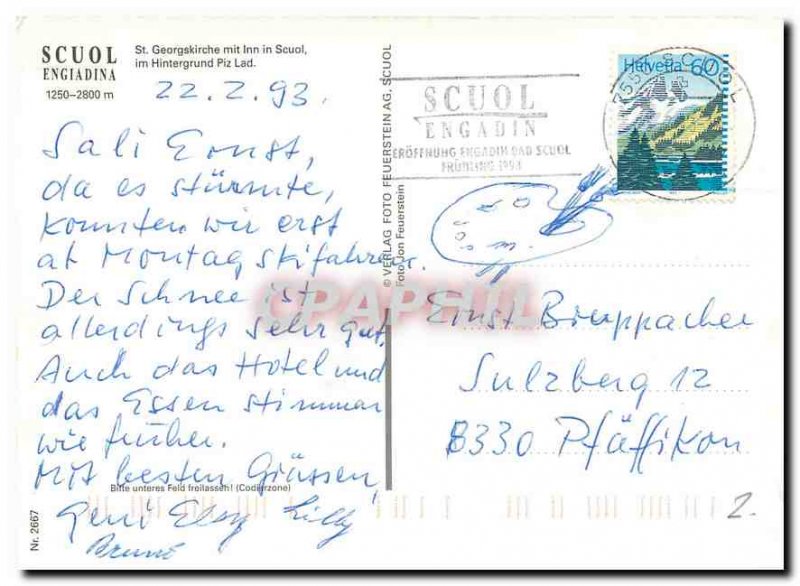 SCUOL
ENGIADINA
1250–2800 m
St. Georgskirche mit Inn in Scuol,
im Hintergrund Piz Lad.
22.2.93.
Sali Ernst,
da es stürmte,
konnten wir erst
ab Montag skifahren.
Der Schnee ist
allerdings sehr gut.
Auch das Hotel und
das Essen stimmen
wie früher.
Mit besten Grüssen,
Bitte unteres Feld freilassen! (Codierzone)
Elsy Lilly
Bruno
Nr. 2667
© VERLAG FOTO FEUERSTEIN AG, SCUOL
Foto Jon Feuerstein
SCUOL
ENGADIN
ERÖFFNUNG ENGADIN BAD SCUOL
FRÜHLING 1993
7550 SCUOL
Helvetia 60
CPAPSUL
Ernst
Sulzberg 12
8330 Pfäffikon
2.